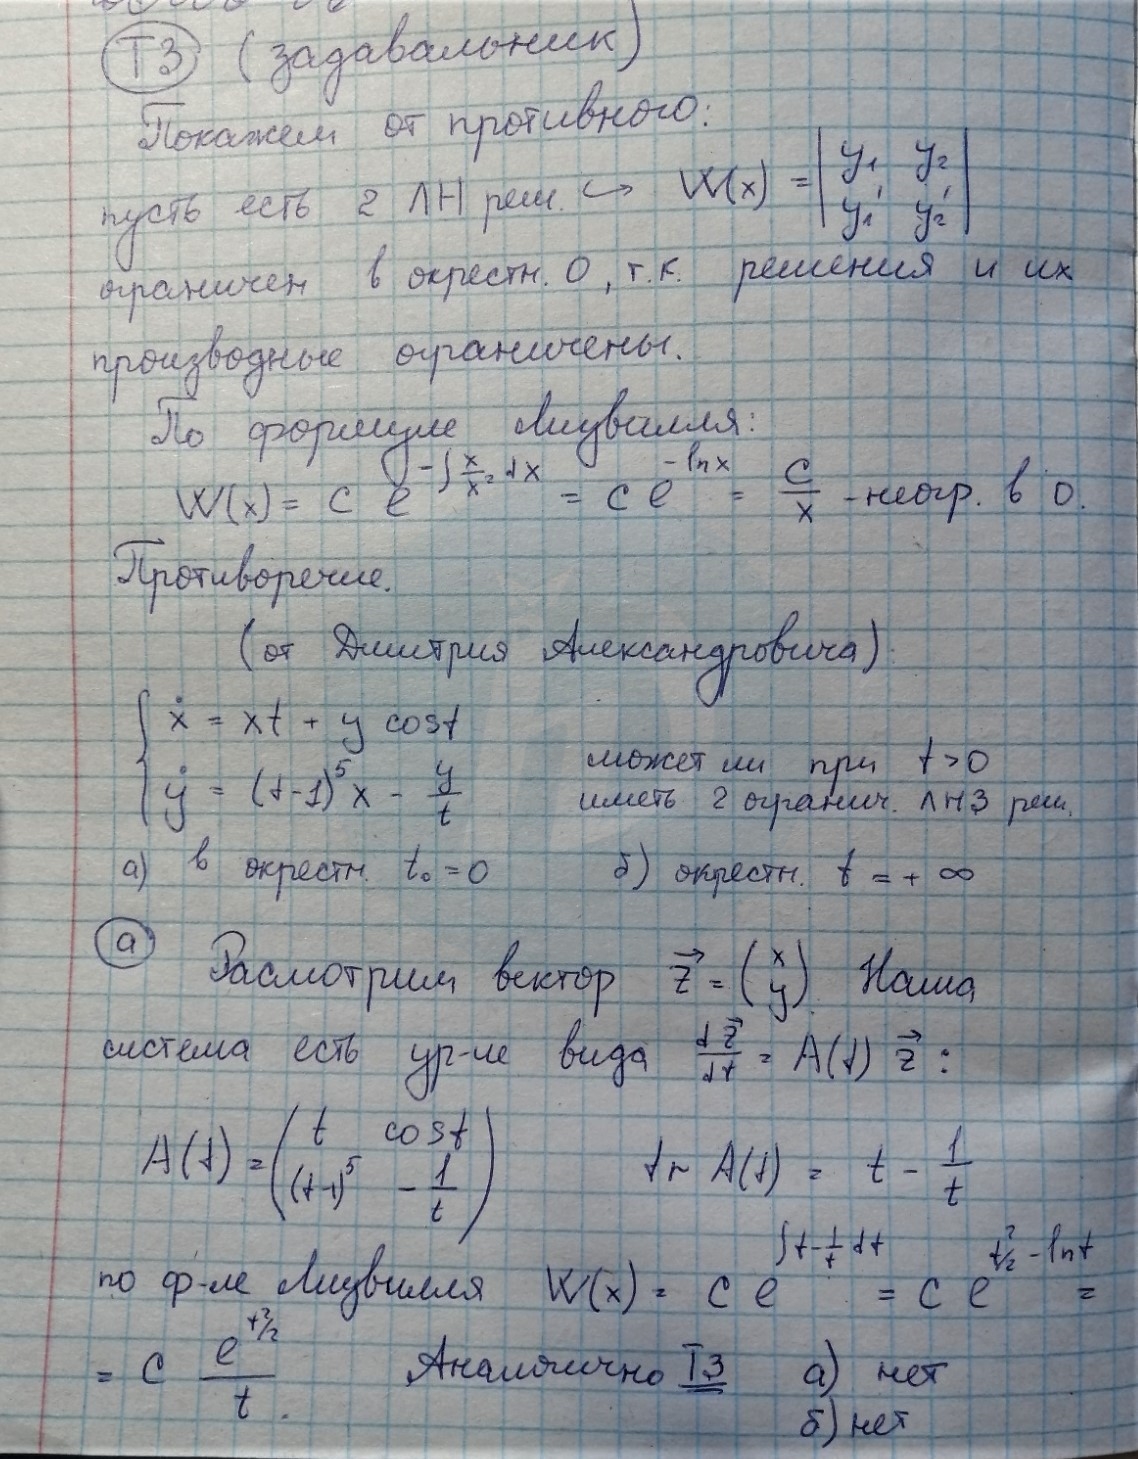 Т3 (задавальник)
Покажем от противного:
пусть есть 2 ЛН реш. ↪ W(x) = | y₁ y₂ |
| y₁' y₂' |
ограничен в окрестн. 0, т.к. решения и их
производные ограничены.
По формуле Лиувилля:
W(x) = C e^{-∫ x/x² dx} = C e^{-ln x} = C/x - неогр. в 0.
Противоречие.
(от Дмитрия Александровича)
{ ẋ = xt + y cost
{ ẏ = (t-1)⁵x - y/t
может ли при t>0
иметь 2 огранич. ЛНЗ реш.
а) в окрестн. t₀ = 0 б) окрестн. t = + ∞
а) Расмотрим вектор z⃗ = (x y). Наша
система есть ур-ие вида dz⃗/dt = A(t) z⃗ :
A(t) = ( t cost
(t-1)⁵ -1/t ) tr A(t) = t - 1/t
по ф-ле Лиувилля W(x) = C e^{∫t-1/t dt} = C e^{t²/2 - ln t} =
= C e^{t²/2}/t. Аналогично Т3 а) нет
б) нет